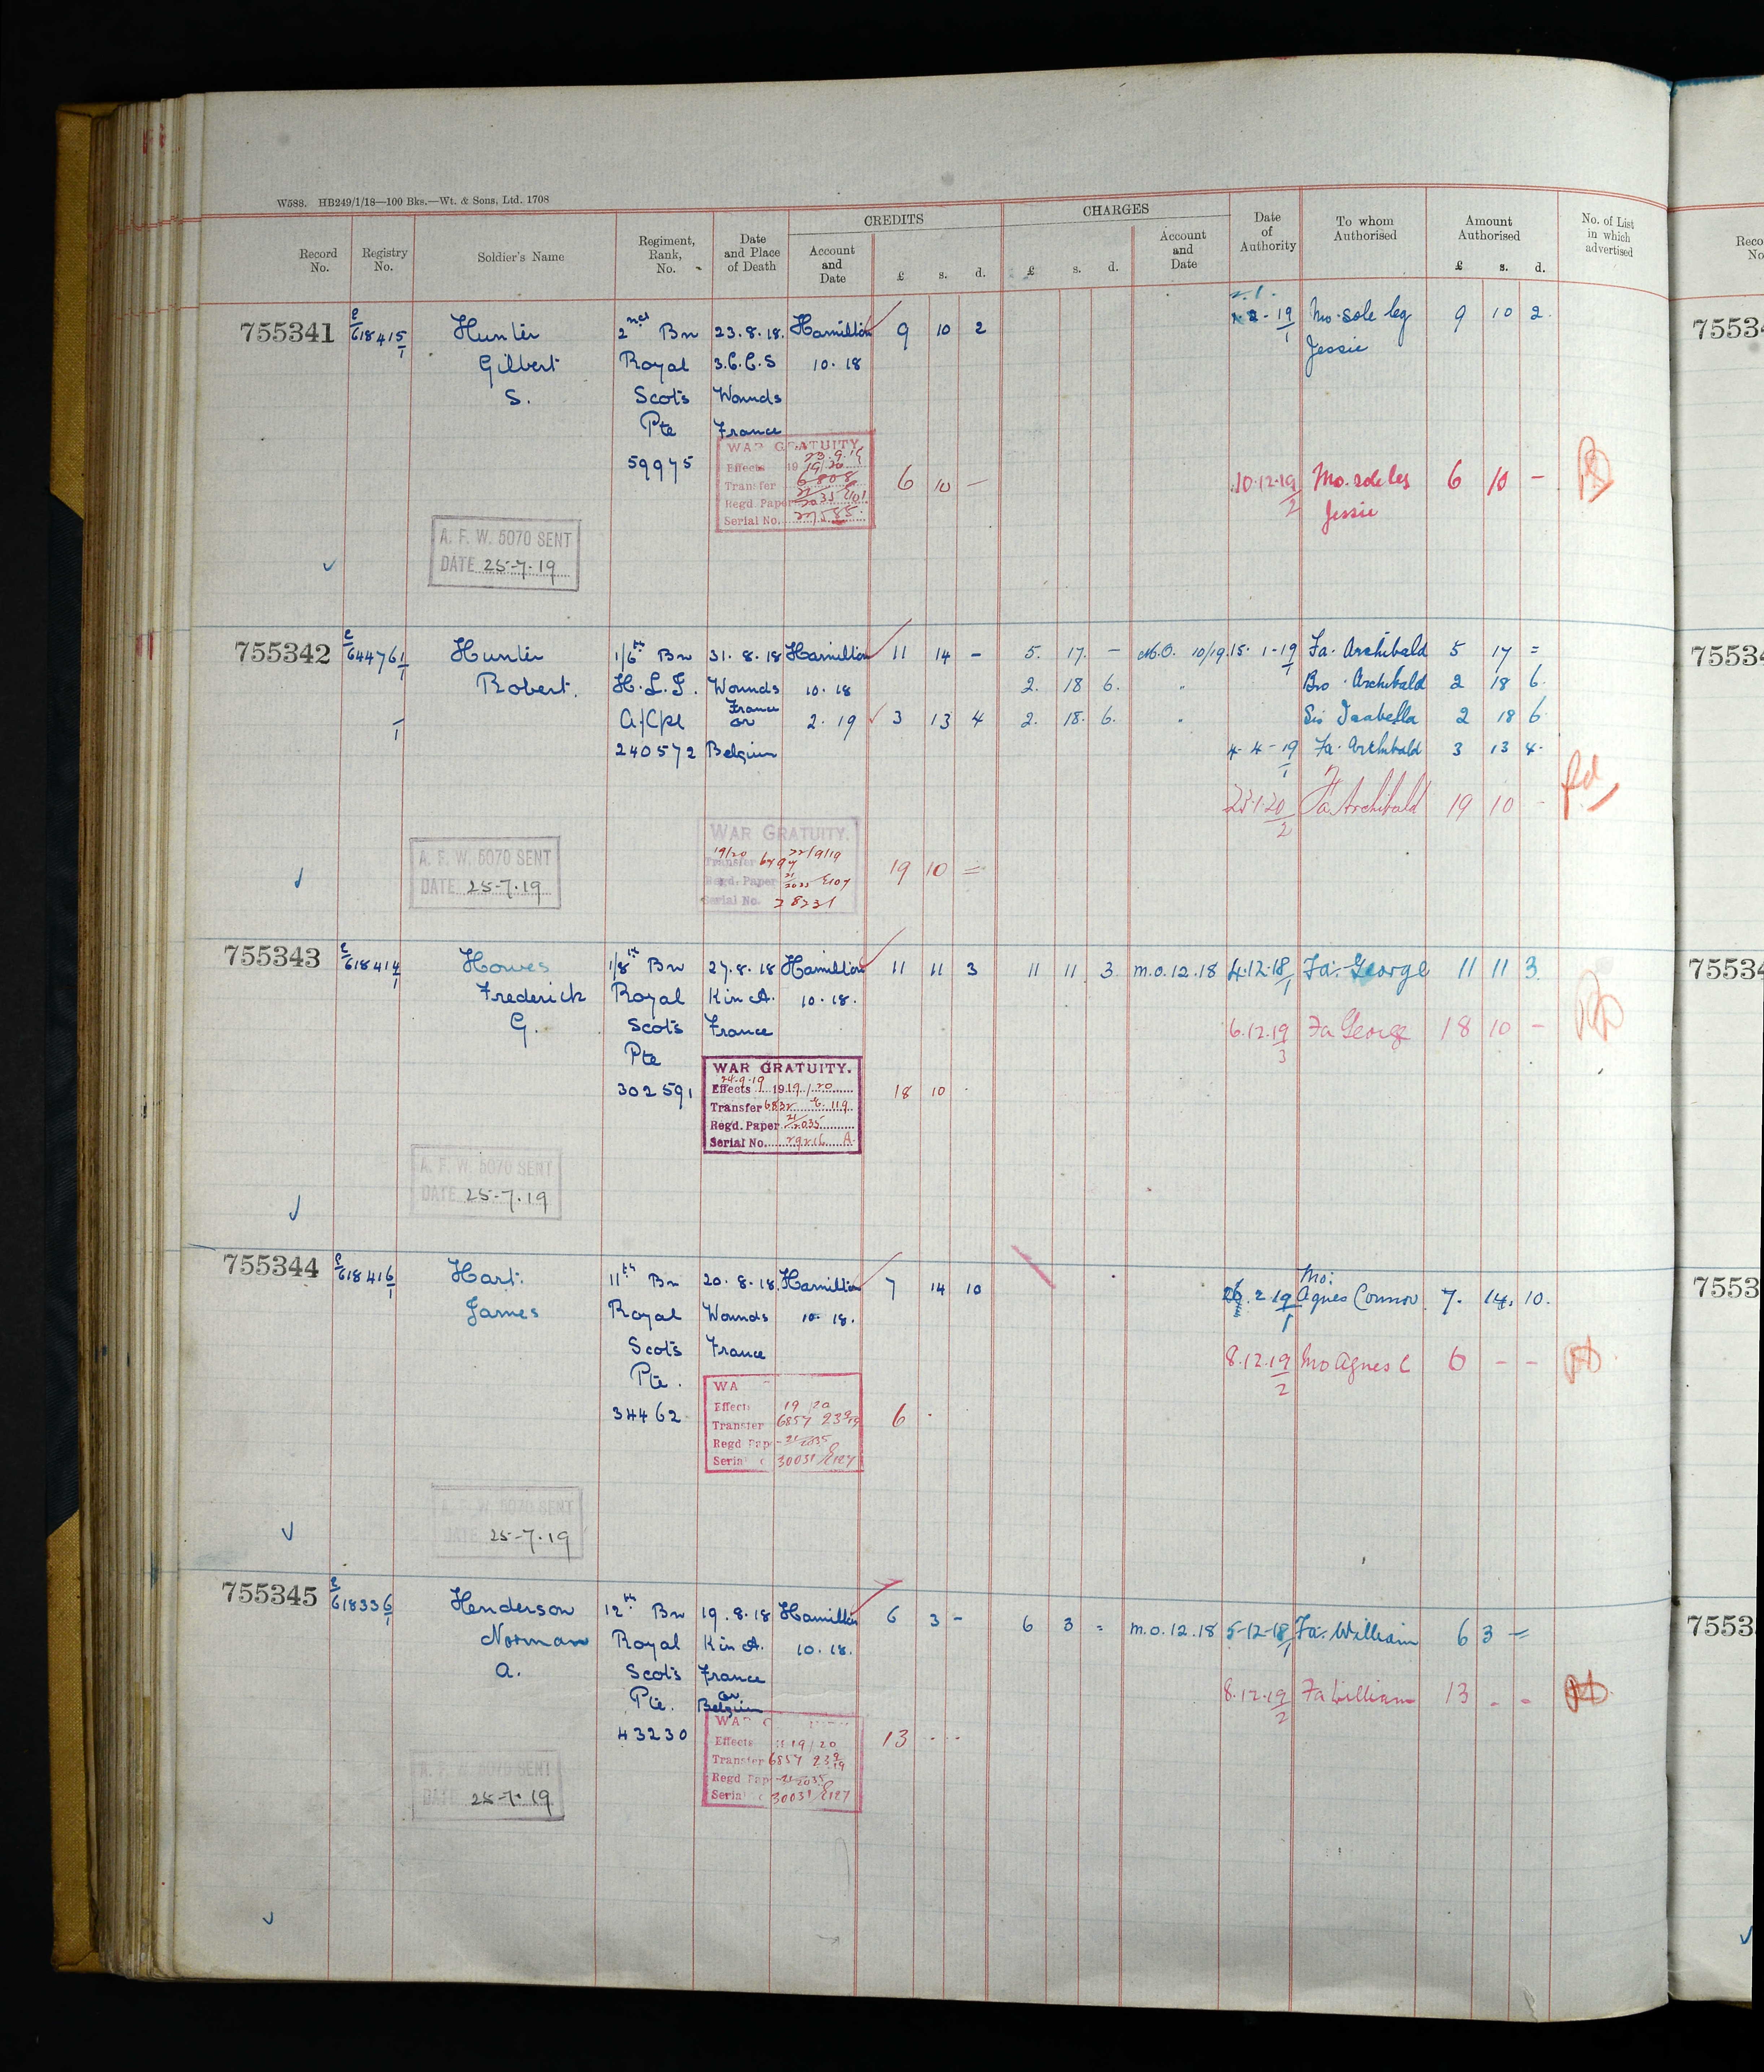 W588. HB249/1/18—100 Bks.—Wt. & Sons, Ltd. 1708
Record No. Registry No. Soldier's Name Regiment, Rank, No. Date and Place of Death CREDITS Account and Date £ s. d. CHARGES £ s. d. Account and Date Date of Authority To whom Authorised Amount Authorised £ s. d. No. of List in which advertised
755341 E/618415/1 Hunter 2nd Bn 23.8.18. Hamilton 9 10 2 19/1 Mo. sole leg 9 10 2.
Gilbert Royal 3.C.C.S 10.18 Jessie
S. Scots Wounds
Pte France
59975
WAR GRATUITY 23.9.19
Effects 1919/20
Transfer 6808 6 10 — 10.12.19/2 Mo. sole leg 6 10 —
Regd Paper 21/2035 Jessie
Serial No. 27585
A. F. W. 5070 SENT
DATE 25-7.19
755342 E/644761/1 Hunter 1/6th Bn 31.8.18 Hamilton 11 14 - 5. 17. — M.O. 10/19 15.1-19/1 Fa. Archibald 5 17 =
Robert. H.L.I. Wounds 10.18 2. 18 6. " Bro. Archibald 2 18 6.
1 A/Cpl France or 2.19 3 13 4 2. 18. 6. " Sis Isabella 2 18 6
240572 Belgium 4-4-19/1 Fa. Archibald 3 13 4.
23.1.20/2 Fa Archibald 19 10 -
WAR GRATUITY.
19/20 22/9/19
Transfer
Regd. Paper 21/2035 19 10 =
Serial No. 28231
A. F. W. 5070 SENT
DATE 25-7.19
755343 E/618414/1 Howes 1/8th Bn 27.8.18 Hamilton 11 11 3 11 11 3. m.o.12.18 4.12.18/1 Fa: George 11 11 3.
Frederick Royal K in A. 10.18.
G. Scots France 6.12.19/3 Fa George 18 10 -
Pte
302591
WAR GRATUITY.
24.9.19
Effects 1919/20 18 10
Transfer 6832 E. 119
Regd. Paper 21/2035
Serial No. 29216 A
A. F. W. 5070 SENT
DATE 25-7.19
755344 E/618416/1 Hart. 11th Bn 20.8.18. Hamilton 7 14 10 26.2.19/1 Mo: Agnes Connor 7. 14. 10.
James Royal Wounds 10.18.
Scots France 8.12.19/2 Mo Agnes C 6 - -
Pte.
34462
WA
Effects 19/20 6
Transfer 6857 23/9/19
Regd Pap 21/2035
Serial 30031/E127
A. F. W. 5070 SENT
DATE 25-7.19
755345 E/618336/1 Henderson 12th Bn 19.8.18 Hamilton 6 3 - 6 3 = m.o.12.18 5-12-18/1 Fa. William 6 3 =
Norman Royal K in A. 10.18.
A. Scots France
Pte. or Belgium 8.12.19/2 Fa William 13 - -
43230
WA
Effects 1919/20 13
Transfer 6857 23/9/19
Regd Pap 21/2035
Serial 30031/E127
A. F. W. 5070 SENT
DATE 25-7.19
Reco
No
7553
7553
7553
7553
7553